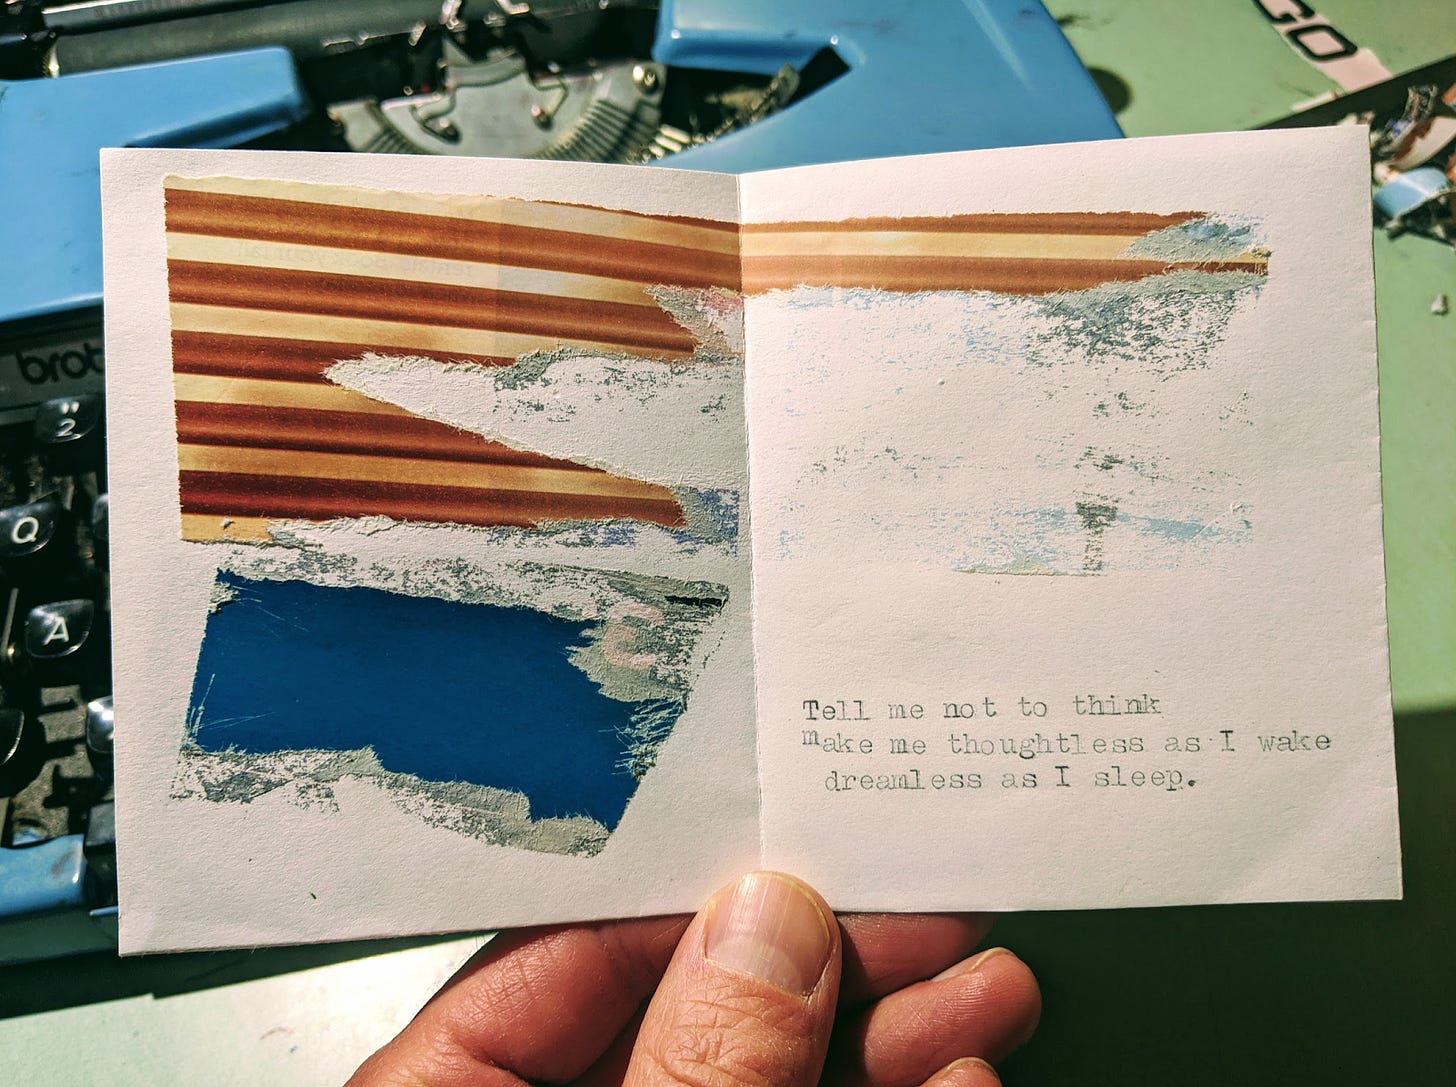 GO
brot
"
2
Q
A
Tell me not to think
make me thoughtless as I wake
dreamless as I sleep.